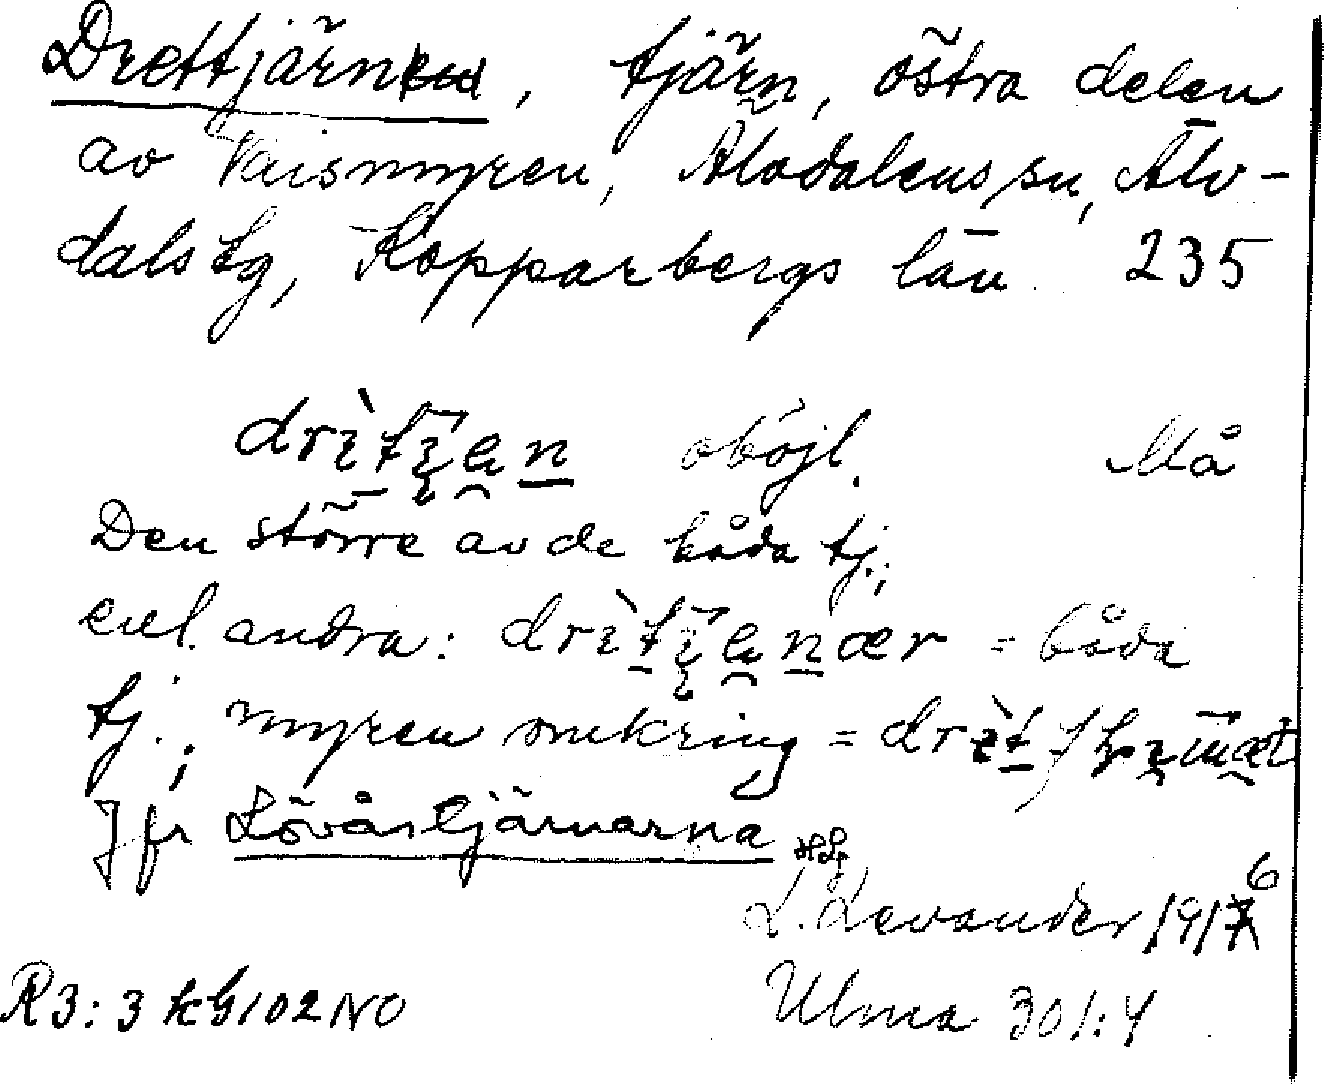 Drettjärn, tjärn, östra delen
av Vaismyren, Älvdalens sn, Älv-
dals tg, Kopparbergs län 235
oböjl. Må
Den större av de båda tj.;
enl. andra: = båda
tj.; myren omkring =
Jfr Lövåstjärnarna
L. Levander 1916
R3: 3 kG102NO Ulma 301:4